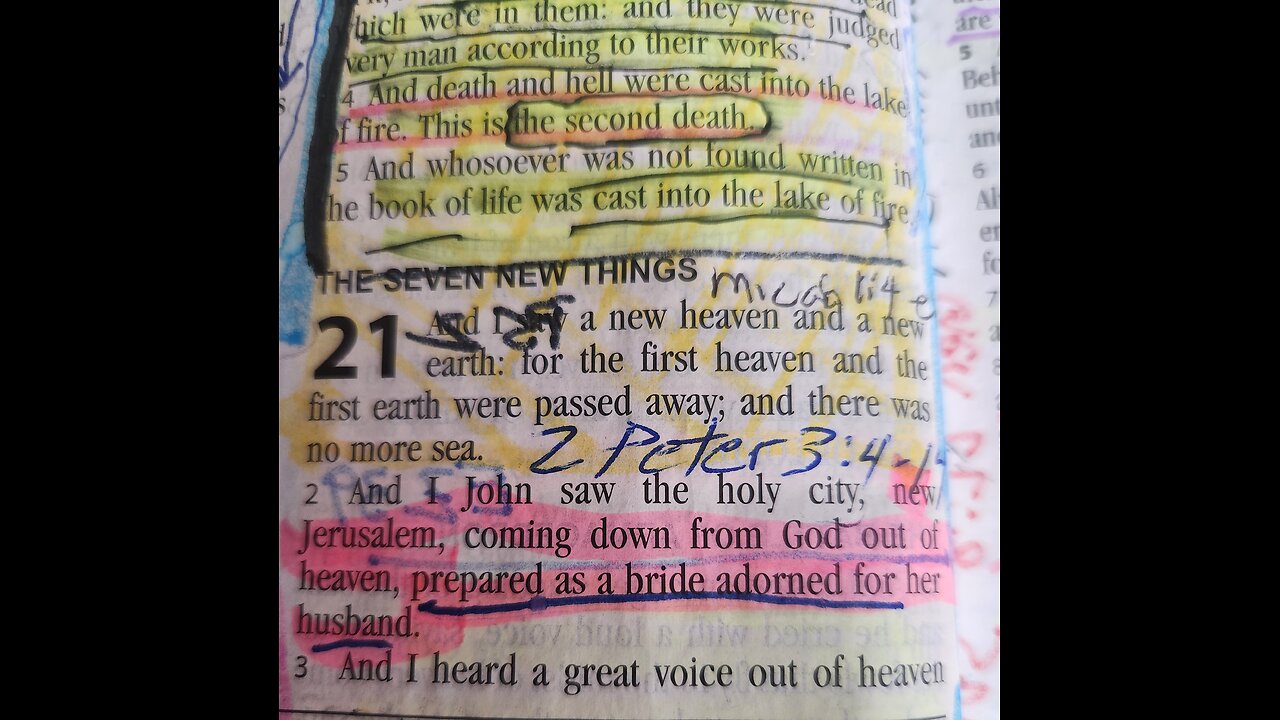 dead
hich were in them: and they were judged
very man according to their works.
4 And death and hell were cast into the lake
f fire. This is the second death.
5 And whosoever was not found written in
he book of life was cast into the lake of fire.
THE SEVEN NEW THINGS Micah 1:4
21 And I a new heaven and a new
earth: for the first heaven and the
first earth were passed away; and there was
no more sea. 2 Peter 3:4-1
2 And I John saw the holy city, new
Jerusalem, coming down from God out of
heaven, prepared as a bride adorned for her
husband.
3 And I heard a great voice out of heaven
are
5
Beh
unt
and
6
Al
en
fo
7